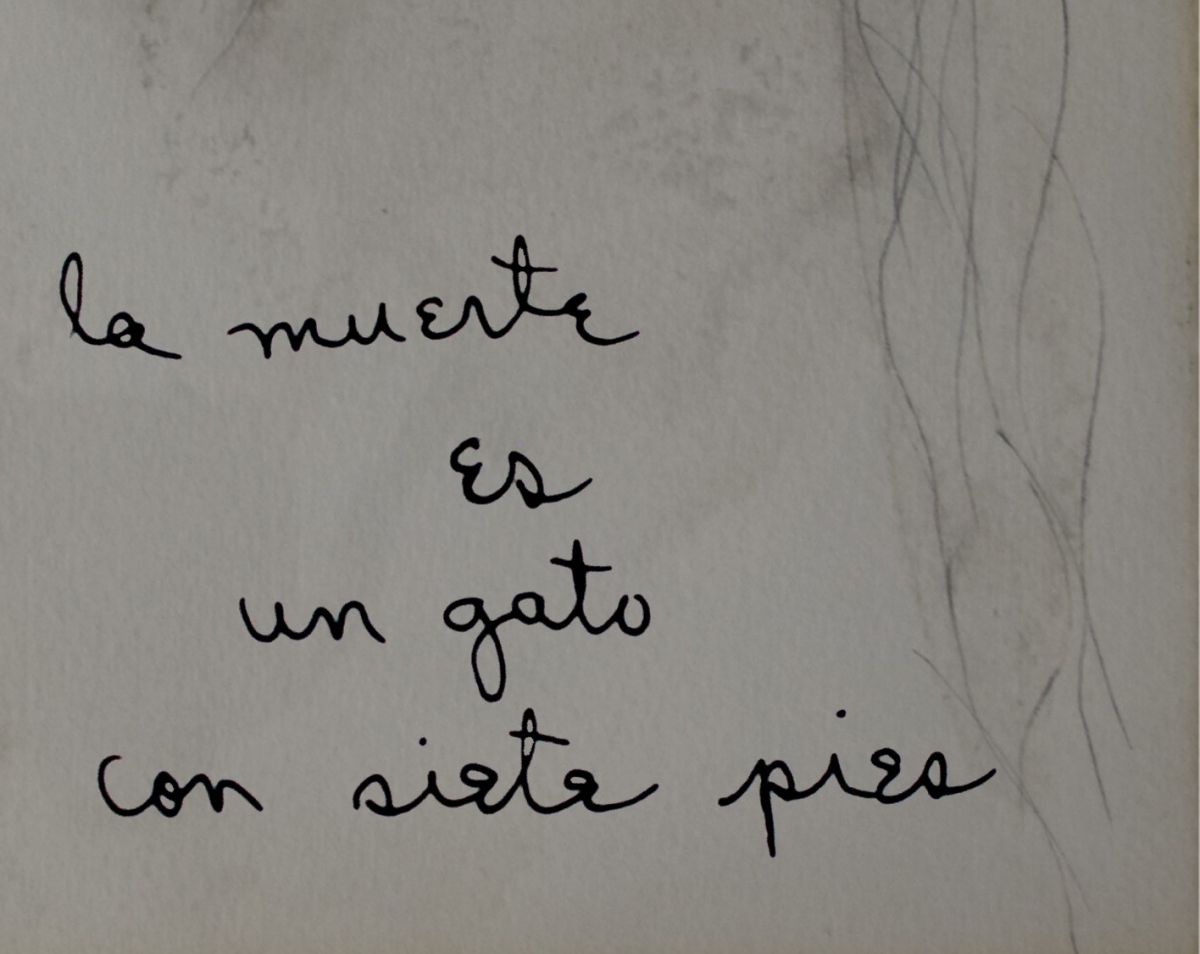 la muerte
es
un gato
con siete pies